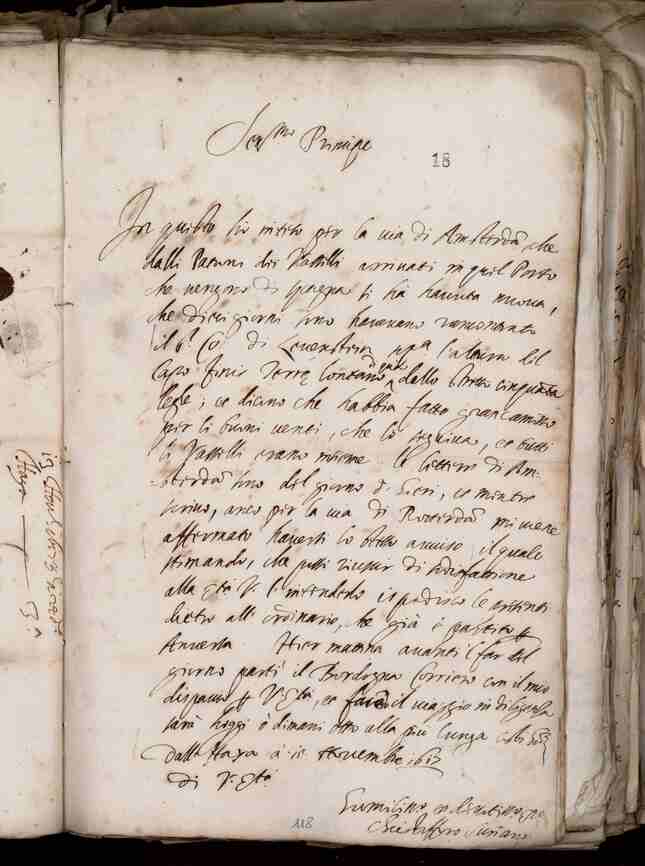 Ser.mo Principe
18
In questo ho inteso per la via di Amsterdã che
dalli Patroni dei Vasselli arrivati in quel Porto
che vengono di Spagna si hà havuta nuova,
che dieci giorni sono havevano rincontrato
il s.r Co: di Levenstein sop.a l'altura del
Capo finis Terrę lontano dentro dallo stretto cinquãta
leghe; et dicono che habbia fatto gran camino
per li buoni venti, che lo seguiva, et tutti
li Vasselli erano insieme. Le lettere di Am-
sterdã sono del giorno di hieri, et mentre
scrivo, anco per la via di Roterdã mi viene
affermato haversi lo stesso avviso, il quale
stimando, che possi riuscir di sodisfattione
alla Ser.tà V. l'intenderlo ispedisco le presenti
dietro all'ordinario, che già è partito p
Anversa. Hier mattina avanti il far del
giorno partì il Bordogna Corriero con il mio
dispaccio p V. Ser.tà, et facendo il viaggio in diligenza
sarà hoggi ò dimani otto alla più lunga costì
Dall'Haya à Novembre 1617
di V. Ser.tà
Humilissimo
Christofforo Suriano
118
Haya